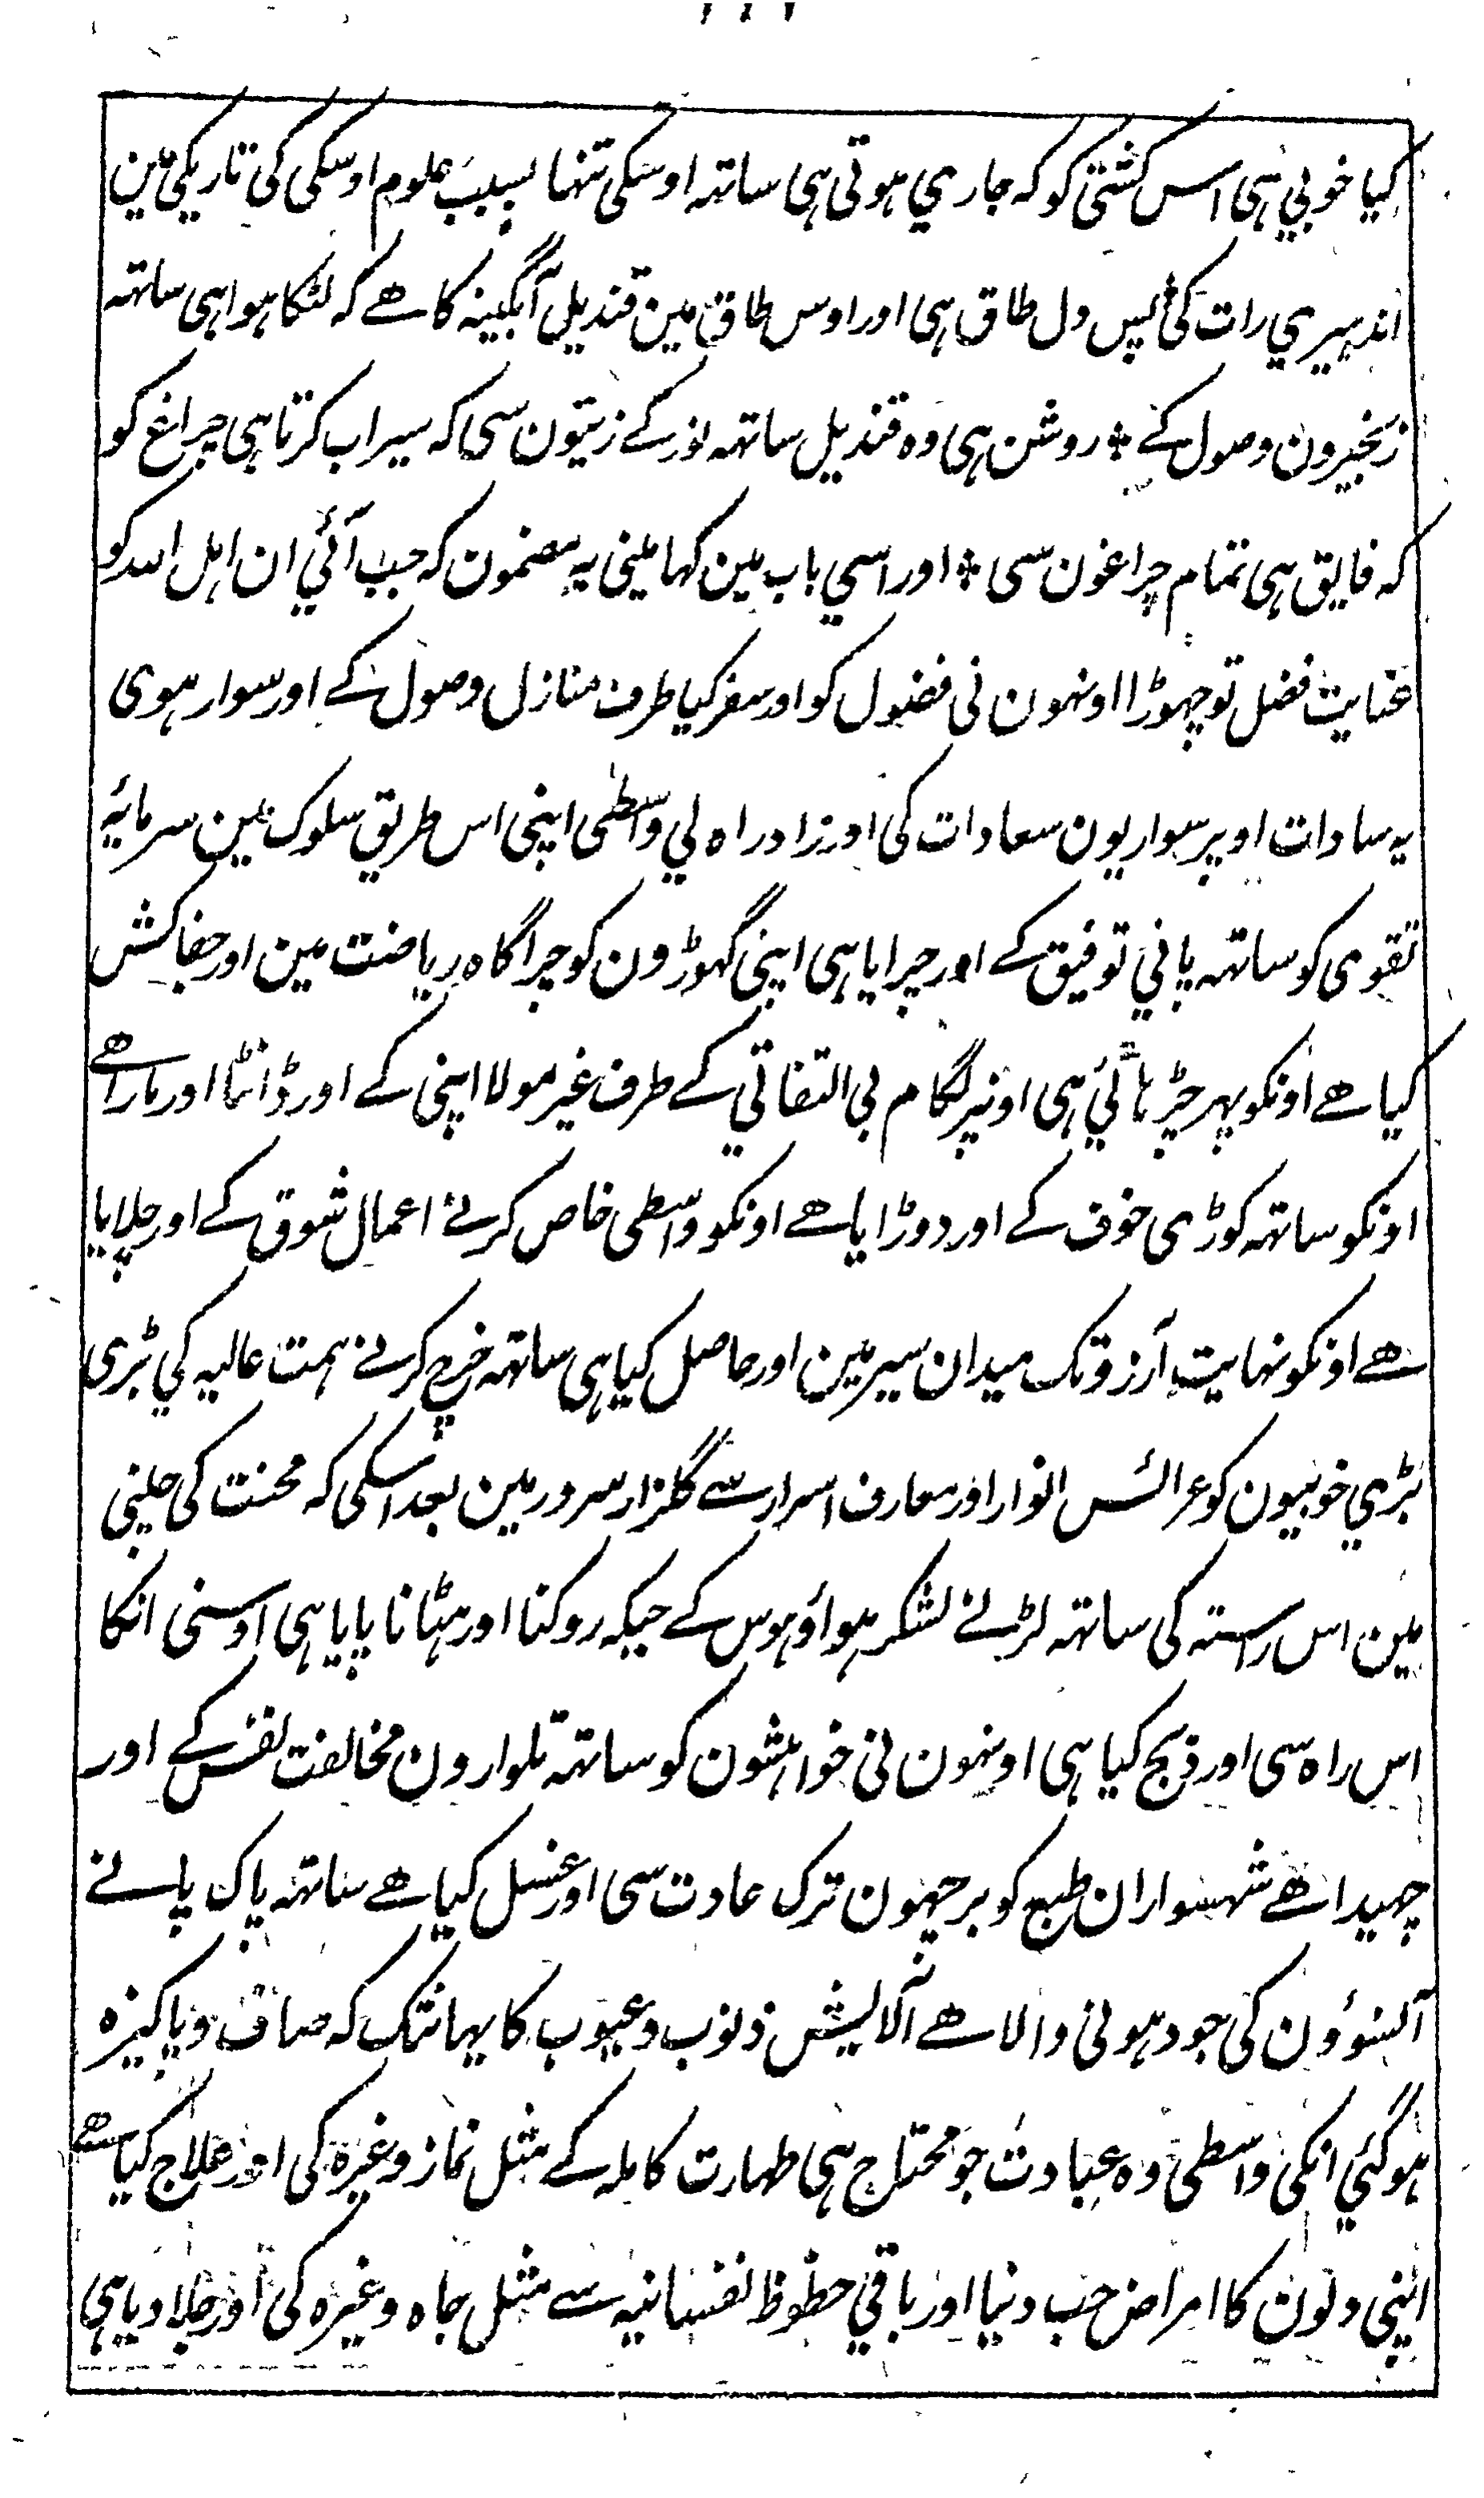 کیا خوبي ہی اس کشتی کو کہ جاري ہوتی ہی ساتہ اوسکی تنہا بسبب علوم اوسکی کی تاریکی مین
اندہیري رات کی پس دل طاق ہی اور اوس طاق مین قندیل آبگینہ کا ھے کہ لٹکا ہوا ہی ساتہ
زنجیرون وصول کے ؞ روشن ہی وہ قندیل ساتہہ نور کے زیتون سی کہ سیراب کرتا ہی چراغ کو
کہ فایق ہی تمام چراغون سی ؞ اور اسي باب مین کہا مینی یہ مضمون کہ جب آئي ان اہل اللہ کو
عنایت فضل تو چہوڑا اونہون نی فضول کو اور سفر کیا طرف منازل وصول کے اور سوار ہوی
یہ سادات اوپر سواریون سعادات کی اور زاد راہ لي واسطی اپنی اس طریق سلوک مین سرمایۂ
تقوی کو ساتہہ پاني توفیق کے اور چرایا ہی اپنی گہوڑون کو چراگاہ ریاضت مین اور جفاکش
کیا ھے اونکو پہر چڑہائي ہی اونپر لگام بی التفاتي کے طرف غیر مولا اپنی کے اور ڈانٹا اور مارا ھے
اونکو ساتہہ کوڑی خوف کے اور دوڑایا ھے اونکو واسطی خاص کرنے اعمال شوق کے اور چلایا
ھے اونکو نہایت آرزو تک میدان سیر مین اور حاصل کیا ہی ساتہہ خرچ کرنے ہمت عالیہ کي بڑی
بڑي خوبیون کو عرائس انوار اور معارف اسرار سے گلزار سرور مین بعد اسکی کہ محنت کی چلنی
مین اس رستہ کی ساتہہ لڑنے لشکر ہوا و ہوس کے جبکہ روکنا اور ہٹانا پایا ہی اوسنی انکا
اس راہ سی اور ذبح کیا ہی اونہون نی خواہشون کو ساتہہ تلوارون مخالفت نفس کے اور
چہیدا ھے شہسواران طبع کو برچہون ترک عادت سی اور غسل کیا ھے ساتہہ پاک پانے
آنسوؤن کی جو دہونی والا ھے آلایش ذنوب و عیوب کا یہانتک کہ صاف و پاکیزہ
ہوگئي انکی واسطی وہ عبادت جو محتاج ہی طہارت کاملہ کے مثل نماز وغیرہ کی اور علاج کیا ھے
اپنی دلون کا امراض حب دنیا اور باقي حظوظ نفسانیہ سے مثل جاہ وغیرہ کی اور جلا دیا ہی